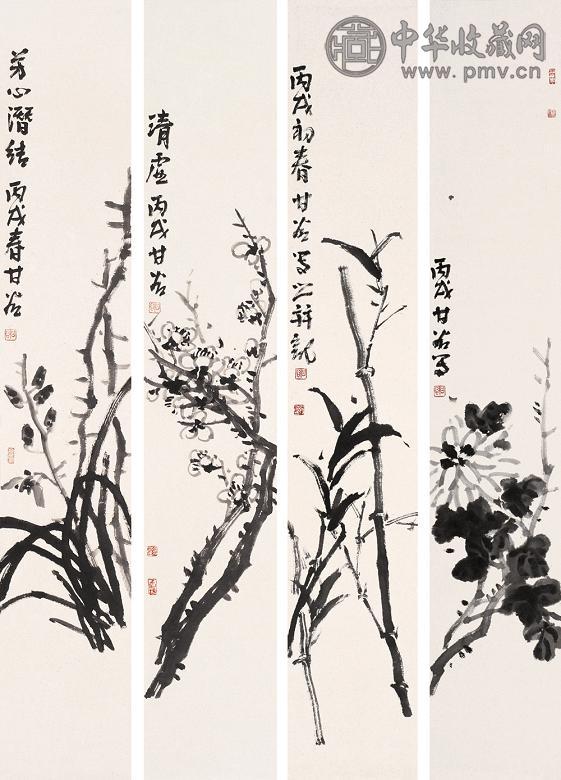 中华收藏网
www.pmv.cn
芳心潛结 丙戌春甘谷
清虚 丙戌甘谷
丙戌初春甘谷写之并记
丙戌甘谷写